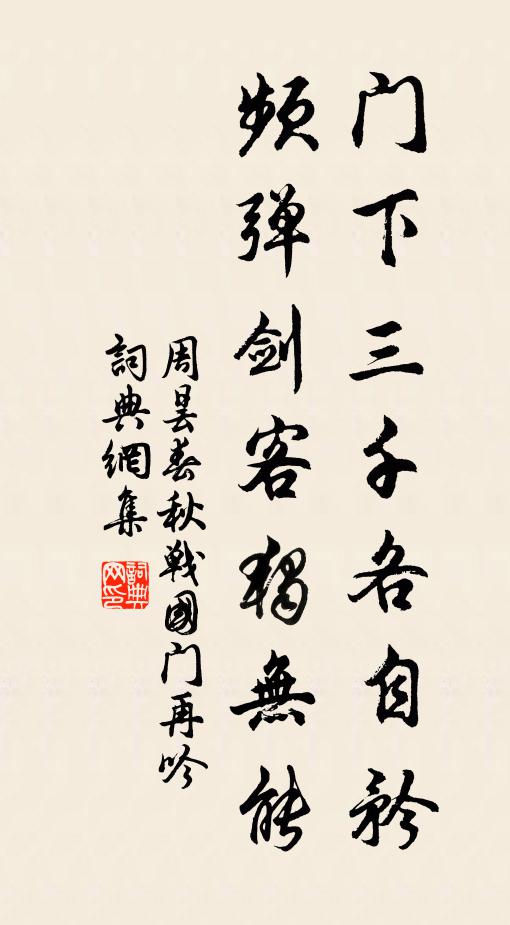 门下三千各自矜
频弹剑客独無能
周昙春秋戰國门再吟
詞典網集
詞典网印